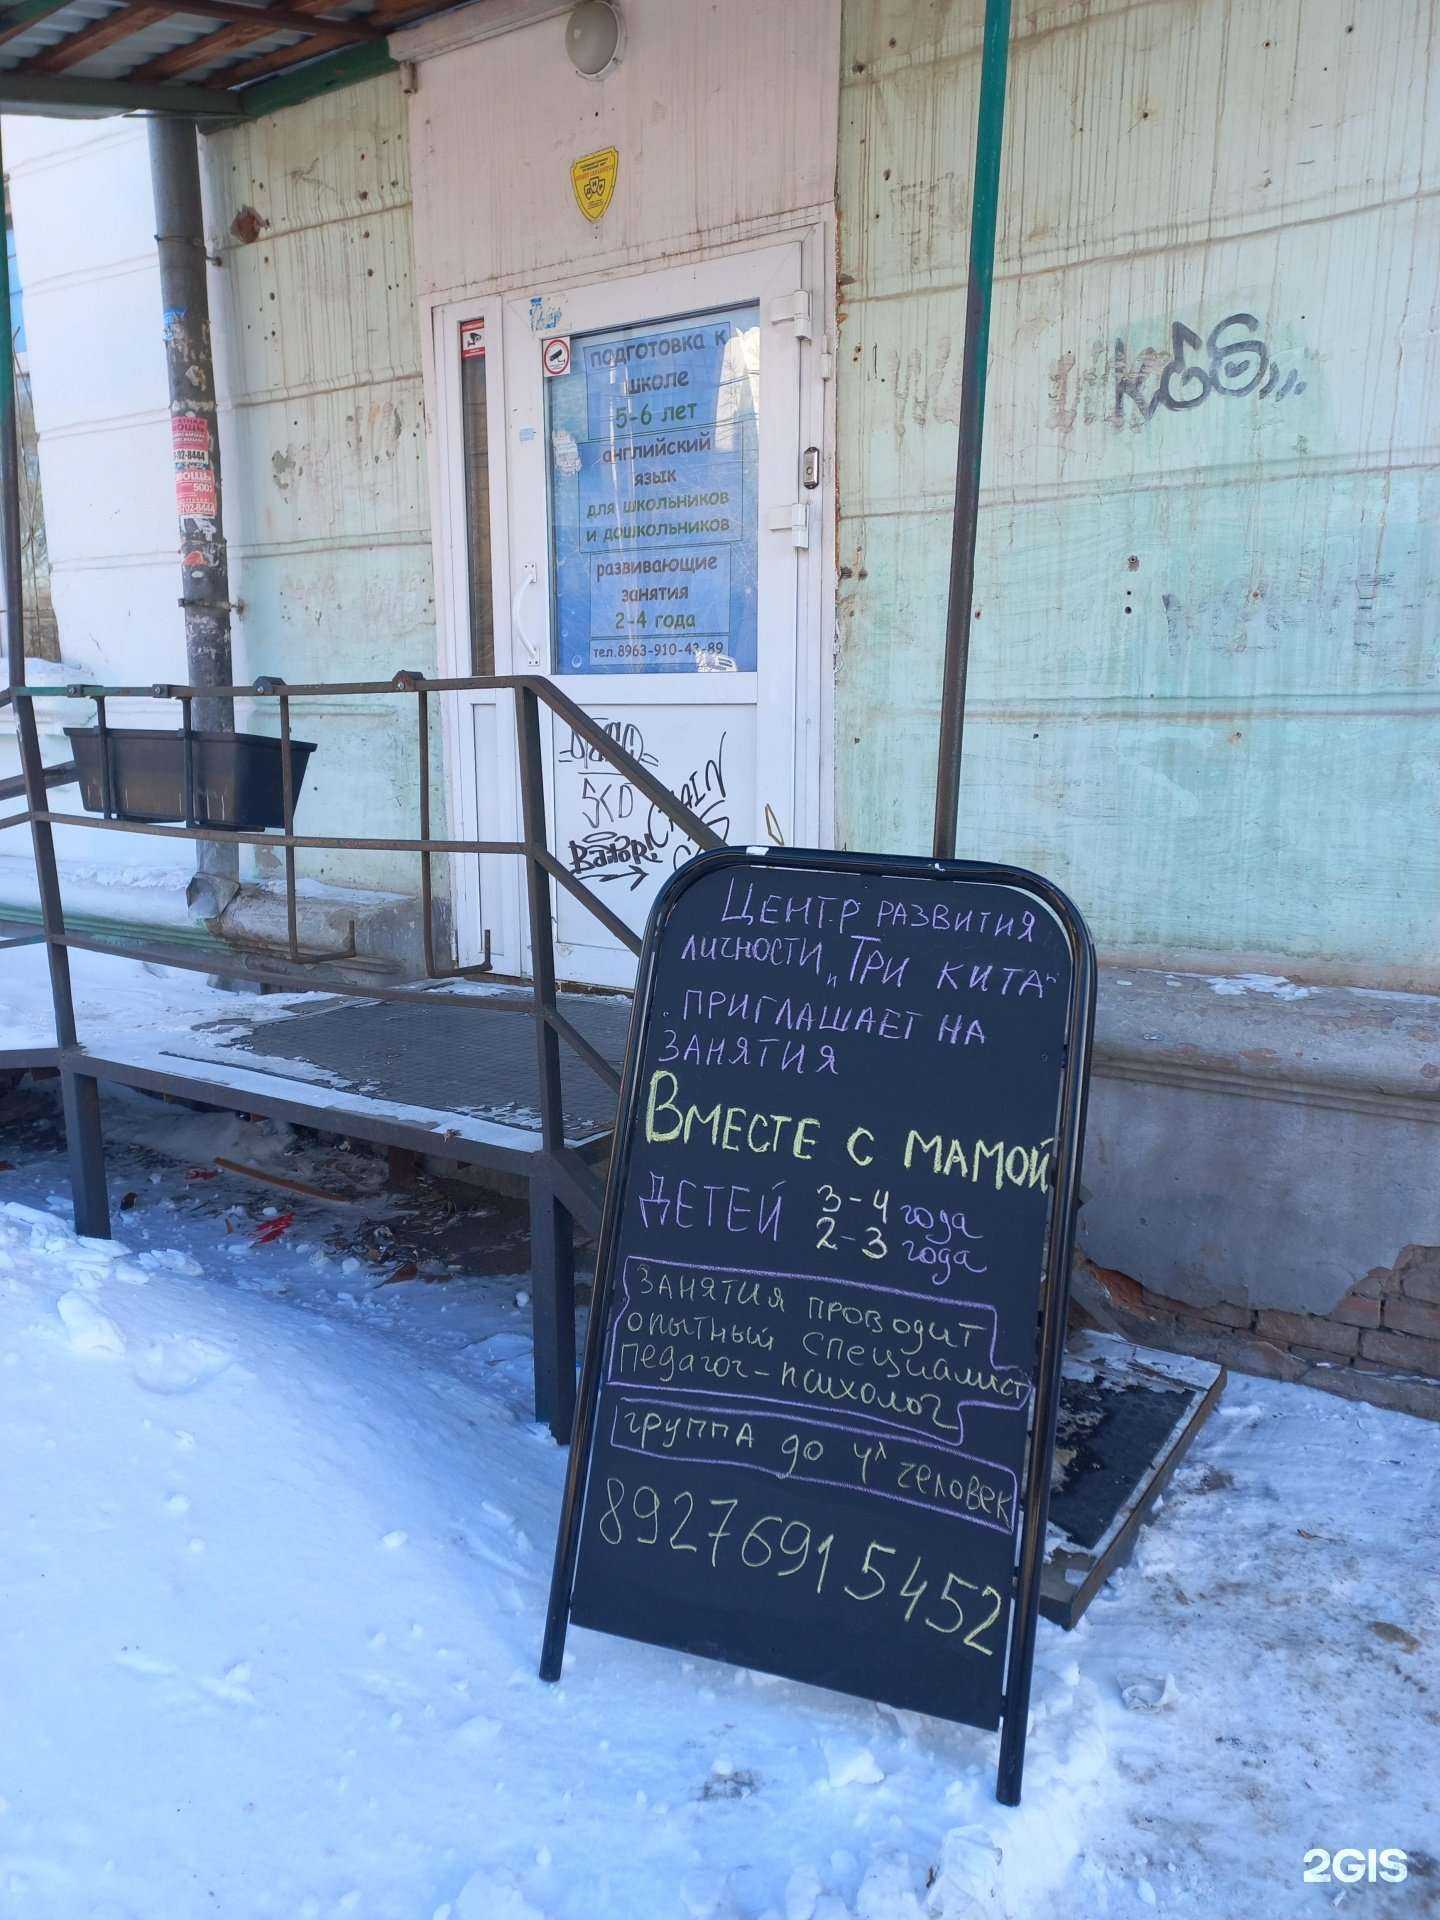 подготовка к
школе
5-6 лет
английский
язык
для школьников
и дошкольников
развивающие
занятия
2-4 года
тел.8963-910-43-89
5002
702-8444
KGS
SKD
BaToR
CHAIN
Центр развития
личности "Три кита"
приглашает на
занятия
Вместе с мамой
детей 3-4 года
2-3 года
Занятия проводит
опытный специалист
педагог-психолог
группа до 4х человек
89276915452
2GIS